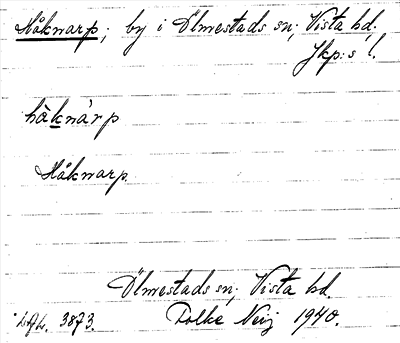 Håknarp; by i Ölmestads sn; Vista hd.
Jkp:s l.
hàknàrp
Håknarp
Ölmestads sn; Vista hd.
3873. Folke Neij 1940.